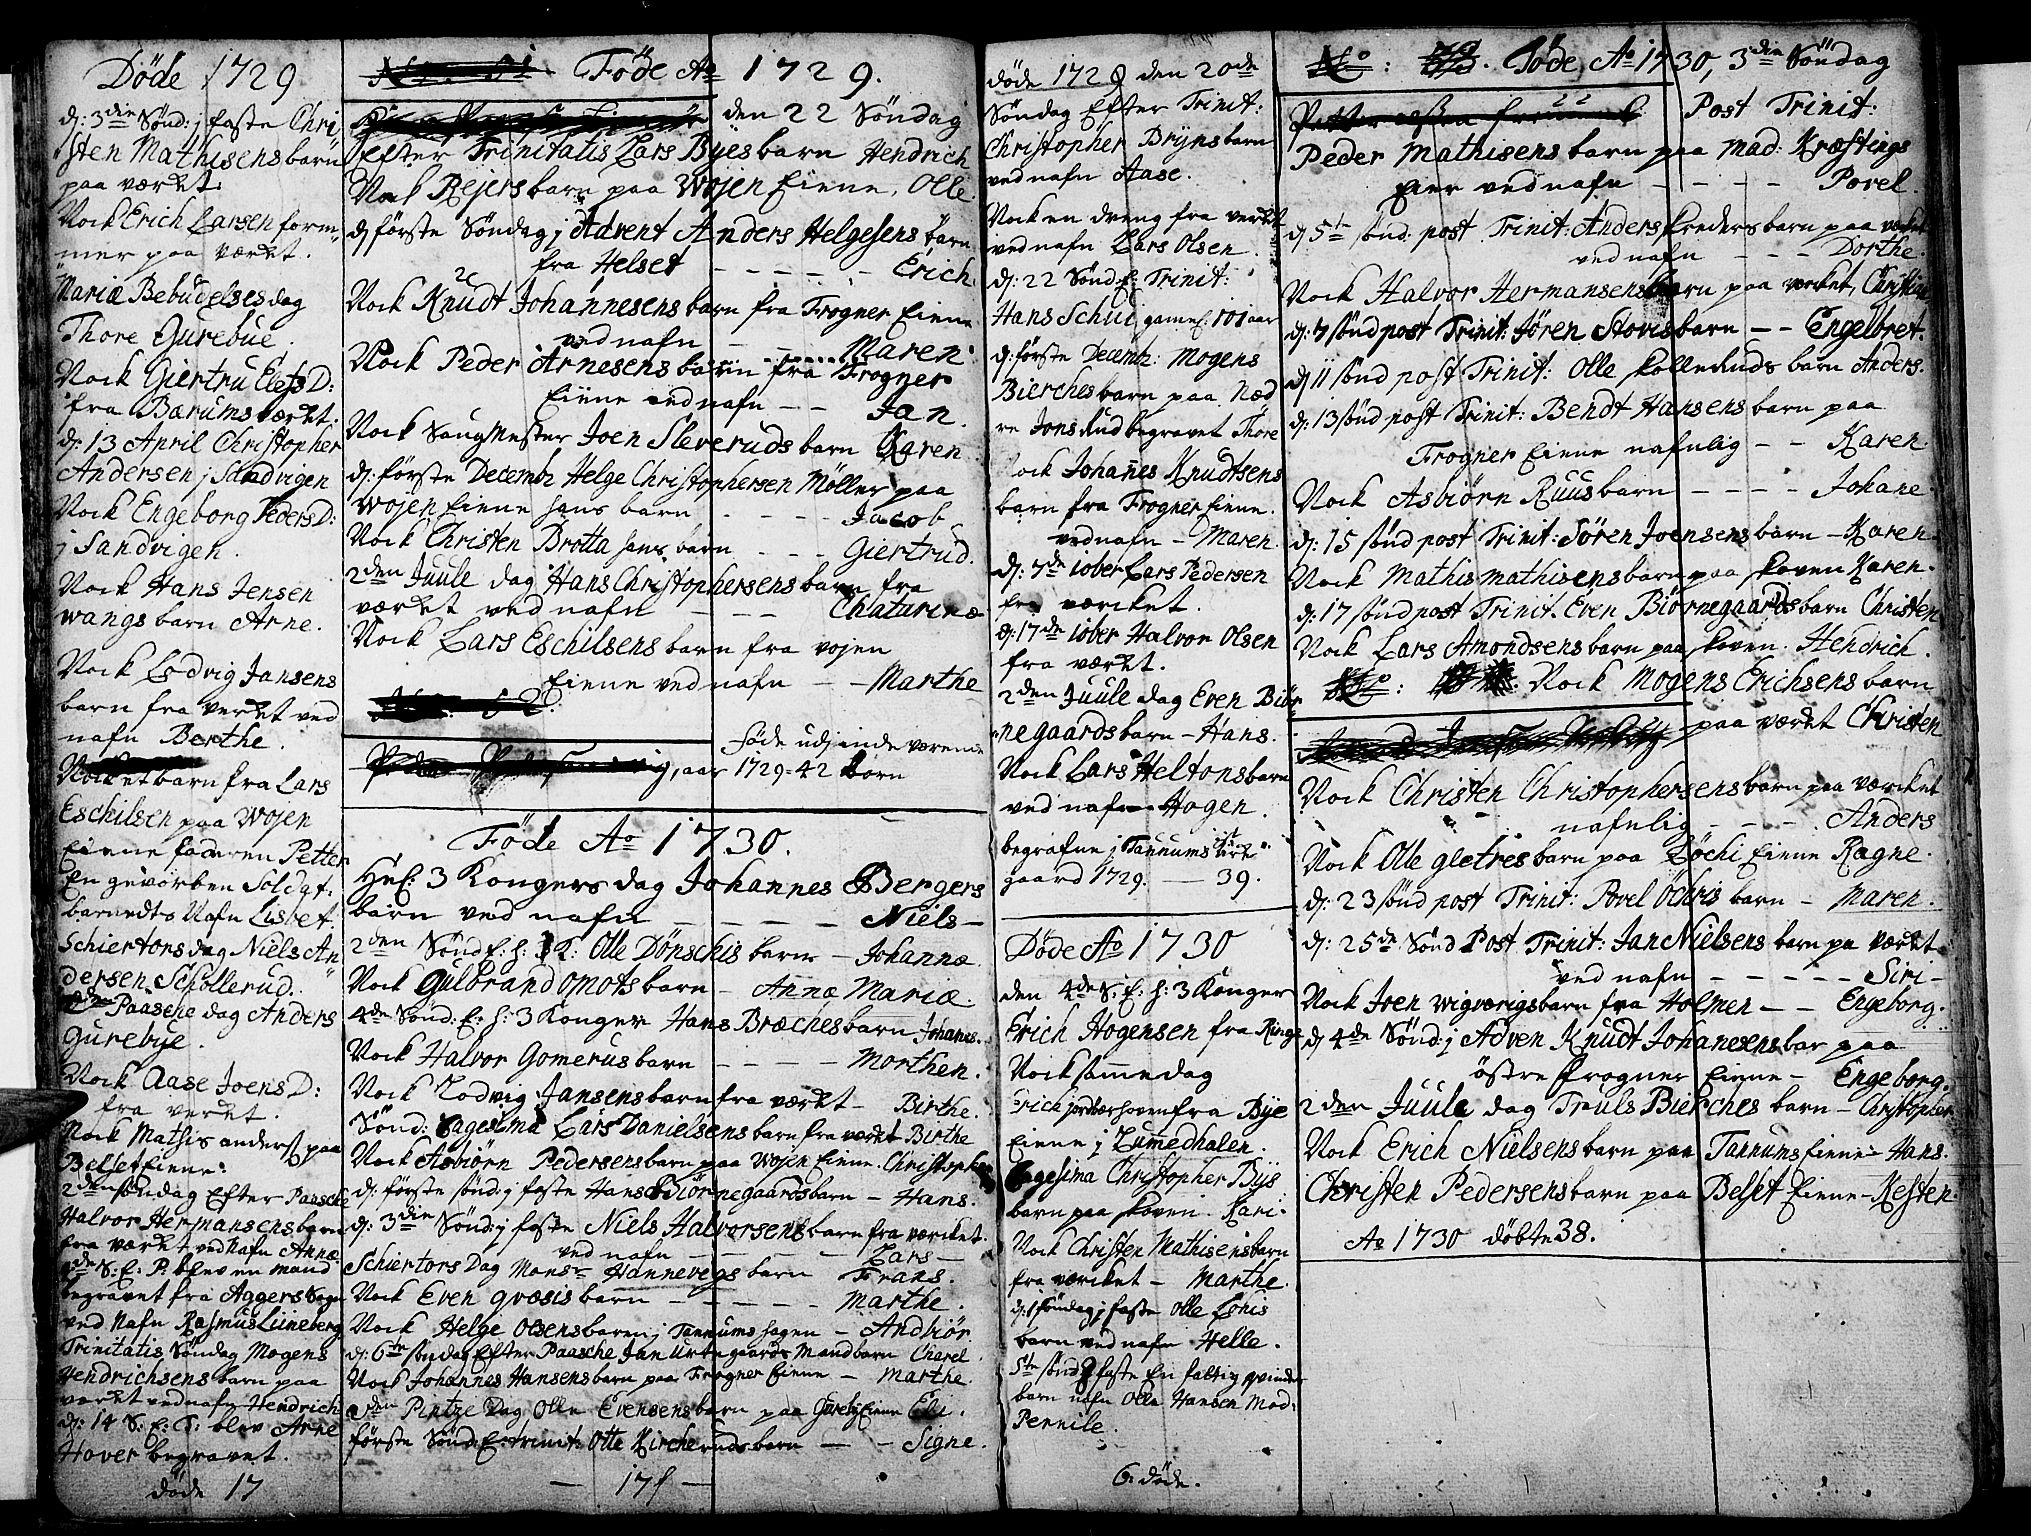 Döde 1729
dj: 3die Sönd: j faste Chri
sten Mathisens barn
paa værket.
Nock Erich Larsen form
mer paa værket.
Mariæ Bebudelses dag
Thore Gurebue.
Nock Giertru ElefsD:
fra Bærums værket.
dj: 13 April Christopher
Andersen j Sandvigen
Nock Engeborg PedersD:
j Sandvigen.
Nock Hans Jensen
wangs barn Arne.
Nock Lodvig Jansens
barn fra verket ved
nafn Berthe.
Nock et barn fra Lars
Eschilsen paa Wojen
Eiene faderen Petter
En gevorben Soldat:
barnedts Nafn Lisbet:
Schiertorsdag Niels An
dersen Schollerud.
Paasche dag Anders
Gurebye.
Nock Aase JoensD:
fra verket.
Nock Mathis anders: paa
Belset Eiene:
2den söndag Efter Paasche
Halvor Hermansens barn
fra værket ved Nafn Annæ
S: E: P: blev en mand
begravet fra Aggers Sogn
ved Nafn Rasmus Lüneberg
Trinitatis Söndag Mogens
Hendrichsens barn paa
verket ved nafn Hendrich
dj: 14 S: E: T: blev Arne
Hover begravet.
döde 17
Föde Ao 1729.
den 22 Söndag
Efter Trinitatis Lars Byes barn Hendrich
Nock Rejers barn paa Wojen Eiene, Olle
dj förste Söndag j Advent Anders Helgesens barn
fra Helset - - - - - Erich
Nock Knudt Johannesens barn fra Frogner Eiene
ved nafn - - Maren.
Nock Peder Arnesens barn fra Frogner
Eiene ved nafn - - Jan.
Nock Saug Mester Joen Sleveruds barn Karen
dj: förste Decembr Helge Christophersen Möller paa
Wojen Eiene hans barn - - - Jacob
Nock Christen Brotta hans barn - - - Giertrud.
2den Juule dag Hans Christophersens barn fra
værket ved nafn - - - Chatarinæ
Nock Lars Eschilsens barn fra vojen
Eiene ved nafn - - Marthe
föde udj inde værende
aar 1729 = 42 börn
Föde Ao 1730.
Hel: 3 Kongers dag Johannes Bergers
barn ved nafn - - - Niels -
2den Sönd E: h: 3 K: Olle Dönschis barn - Johannæ
Nock Gulbrand omots barn - Annæ Mariæ.
4de Sönd: E: h: 3 Konger Hans Bræches barn Johanes.
Nock Halvor Gomerus barn - - - Morthen.
Nock Lodvig Jansens barn fra værket - Birthe.
Sönd: Lars Danielsens barn fra værket Birthe
Nock Asbiörn Pedersens barn paa Wojen Eiene. Christopher
dj: förste sönd: j faste Hans Biörnegaards barn - Hans.
dj: 3die Sönd: j faste Niels Halvorsens barn fra værcket.
ved nafn - - - Lars -
Schiertors Dag Monsr Hannevegs barn Frans.
Nock Even qvæsis barn - - - - - Marthe.
Nock Helge Olsens barn j Tannums hagen - Andbiör
dj: 6te söndag Efter Paasche Jan Urtegaards Mand barn Charel.
Nock Johannes Hansens barn paa Frogner Eiene - Marthe.
2den Pintze Dag Olle Evensens barn paa Gureby Eiene Eli.
förste Sönd: E: trinit: Otte Kirckeruds barn - - Signe.
- 17 -
döde 1729 den 20de
Söndag Efter Trinit:
Christopher Bryns barn
ved nafn Aase.
Nock en dreng fra verket
ved nafn Lars Olsen.
dj: 22 Sönd: E: Trinit:
Hans Schui gamel: 101 aar
dj: förste Decemb: Mogens
Bierches barn paa Ned
re Jonsrud begravet Thore
Nock Johannes Knudtsens
barn fra Frogner Eiene.
ved nafn - Maren.
dj: 7de Xober Lars Pedersen
fra værcket.
dj: 17de Xober Halvor Olsen
fra værket.
2den Juule dag Even Biör
negaards barn - Hans.
Nock Lars Heltons barn
ved nafn - Hogen.
begrafne j Tannums
gaard 1729. - 39.
Döde Ao 1730
den 4de S: E: h: 3 Konger
Erich Hogensen fra
Nock samme dag
Erich fra Bye
Eiene j Lumedhalen.
Christopher Bys
barn paa skoven. Kari.
Nock Christen Mathisens barn
fra værcket - Marthe.
dj: 1 söndag j faste Olle Lohis
barn ved nafn Helle.
5te sönd j faste En fattig qvindes
barn nafn Olle Hansen Mod:
Pernile.
6: döde.
No: Föde Ao 1730, 3die Söndag
Post Trinit:
Peder Mathisens barn paa Mad: Kræftings
Eier ved nafn - - - - Povel.
dj 5te sönd: post Trinit: Anders skreders barn paa verket
ved nafn - - - Dorthe.
Nock Halvor Hermansens barn paa verket, Christian
dj: 7 sönd post Trinit: Jören Stovis barn - - Engelbret.
dj 11 sönd post Trinit: Olle skolleruds barn Anders.
dj: 13 sönd post Trinit: Bendt Hansens barn paa
Frogner Eiene nafnlig - - Karen
Nock Asbiörn Ruus barn - - - - Johane
dj: 15 sönd post Trinit: Sören Joensens barn - Karen.
Nock Mathis mathisens barn paa skoven Karen.
dj: 17 sönd post Trinit. Even Biörnegaards barn Christen
Nock Lars Amondsens barn paa skoven. Hendrich.
No: Nock Mogens Erichsens barn
paa værket Christen
Nock Christen Christophersens barn paa værcket
nafnlig - - - - Anders
Nock Olle gletres barn paa Löchi Eiene Ragne.
dj: 23 sönd post Trinit: Povel Ochris barn - Maren.
dj: 25de Sönd Post Trinit: Jan Nielsens barn pa værket
ved nafn - - - - - Siri -
Nock Joen wigværigs barn fra Holmen - - Engeborg.
dj 4de Sönd: j Adven Knudt Johanesens bar paa
östre frogner Eiene - Engeborg.
2den Juule dag Truls Bierches barn - Christopher
Nock Erich Nielsens barn paa Tannums Eiene - Hans.
Christen Pedersens barn paa Belset Eiene - Kesten
Ao 1730 döbte 38.